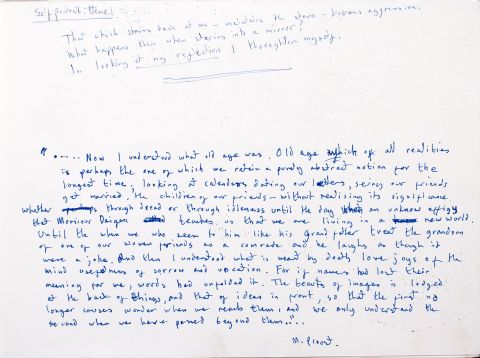 Self portrait: theme:
That which stares back at me – maintains the stare – becomes aggressive.
What happens then when staring into a mirror?
In looking at my reflection I threaten myself.
"..... Now I understand what old age was. Old age which of all realities
is perhaps the one of which we retain a purely abstract notion for the
longest time, looking at calenders dating our letters, seeing our friends
get married, the children of our friends – without realizing its significance
whether through dread or through idleness until the day an unknow effigy
that Monsieur teaches us that we are living in a new world.
Until the when we who seem to him like his grand father treat the grandson
of one of our women friends as a comrade and he laughs as though it
were a joke. And then I understood what is meant by death, love joys of the
mind usefulness of sorrow and vocation. For if names had lost their
meaning for me, words had unfolded it. The beauty of images is lodged
at the back of things, and that of ideas in front, so that the first no
longer causes wonder when we reach them: and we only understand the
second when we have passed beyond them."..
M. Proust.